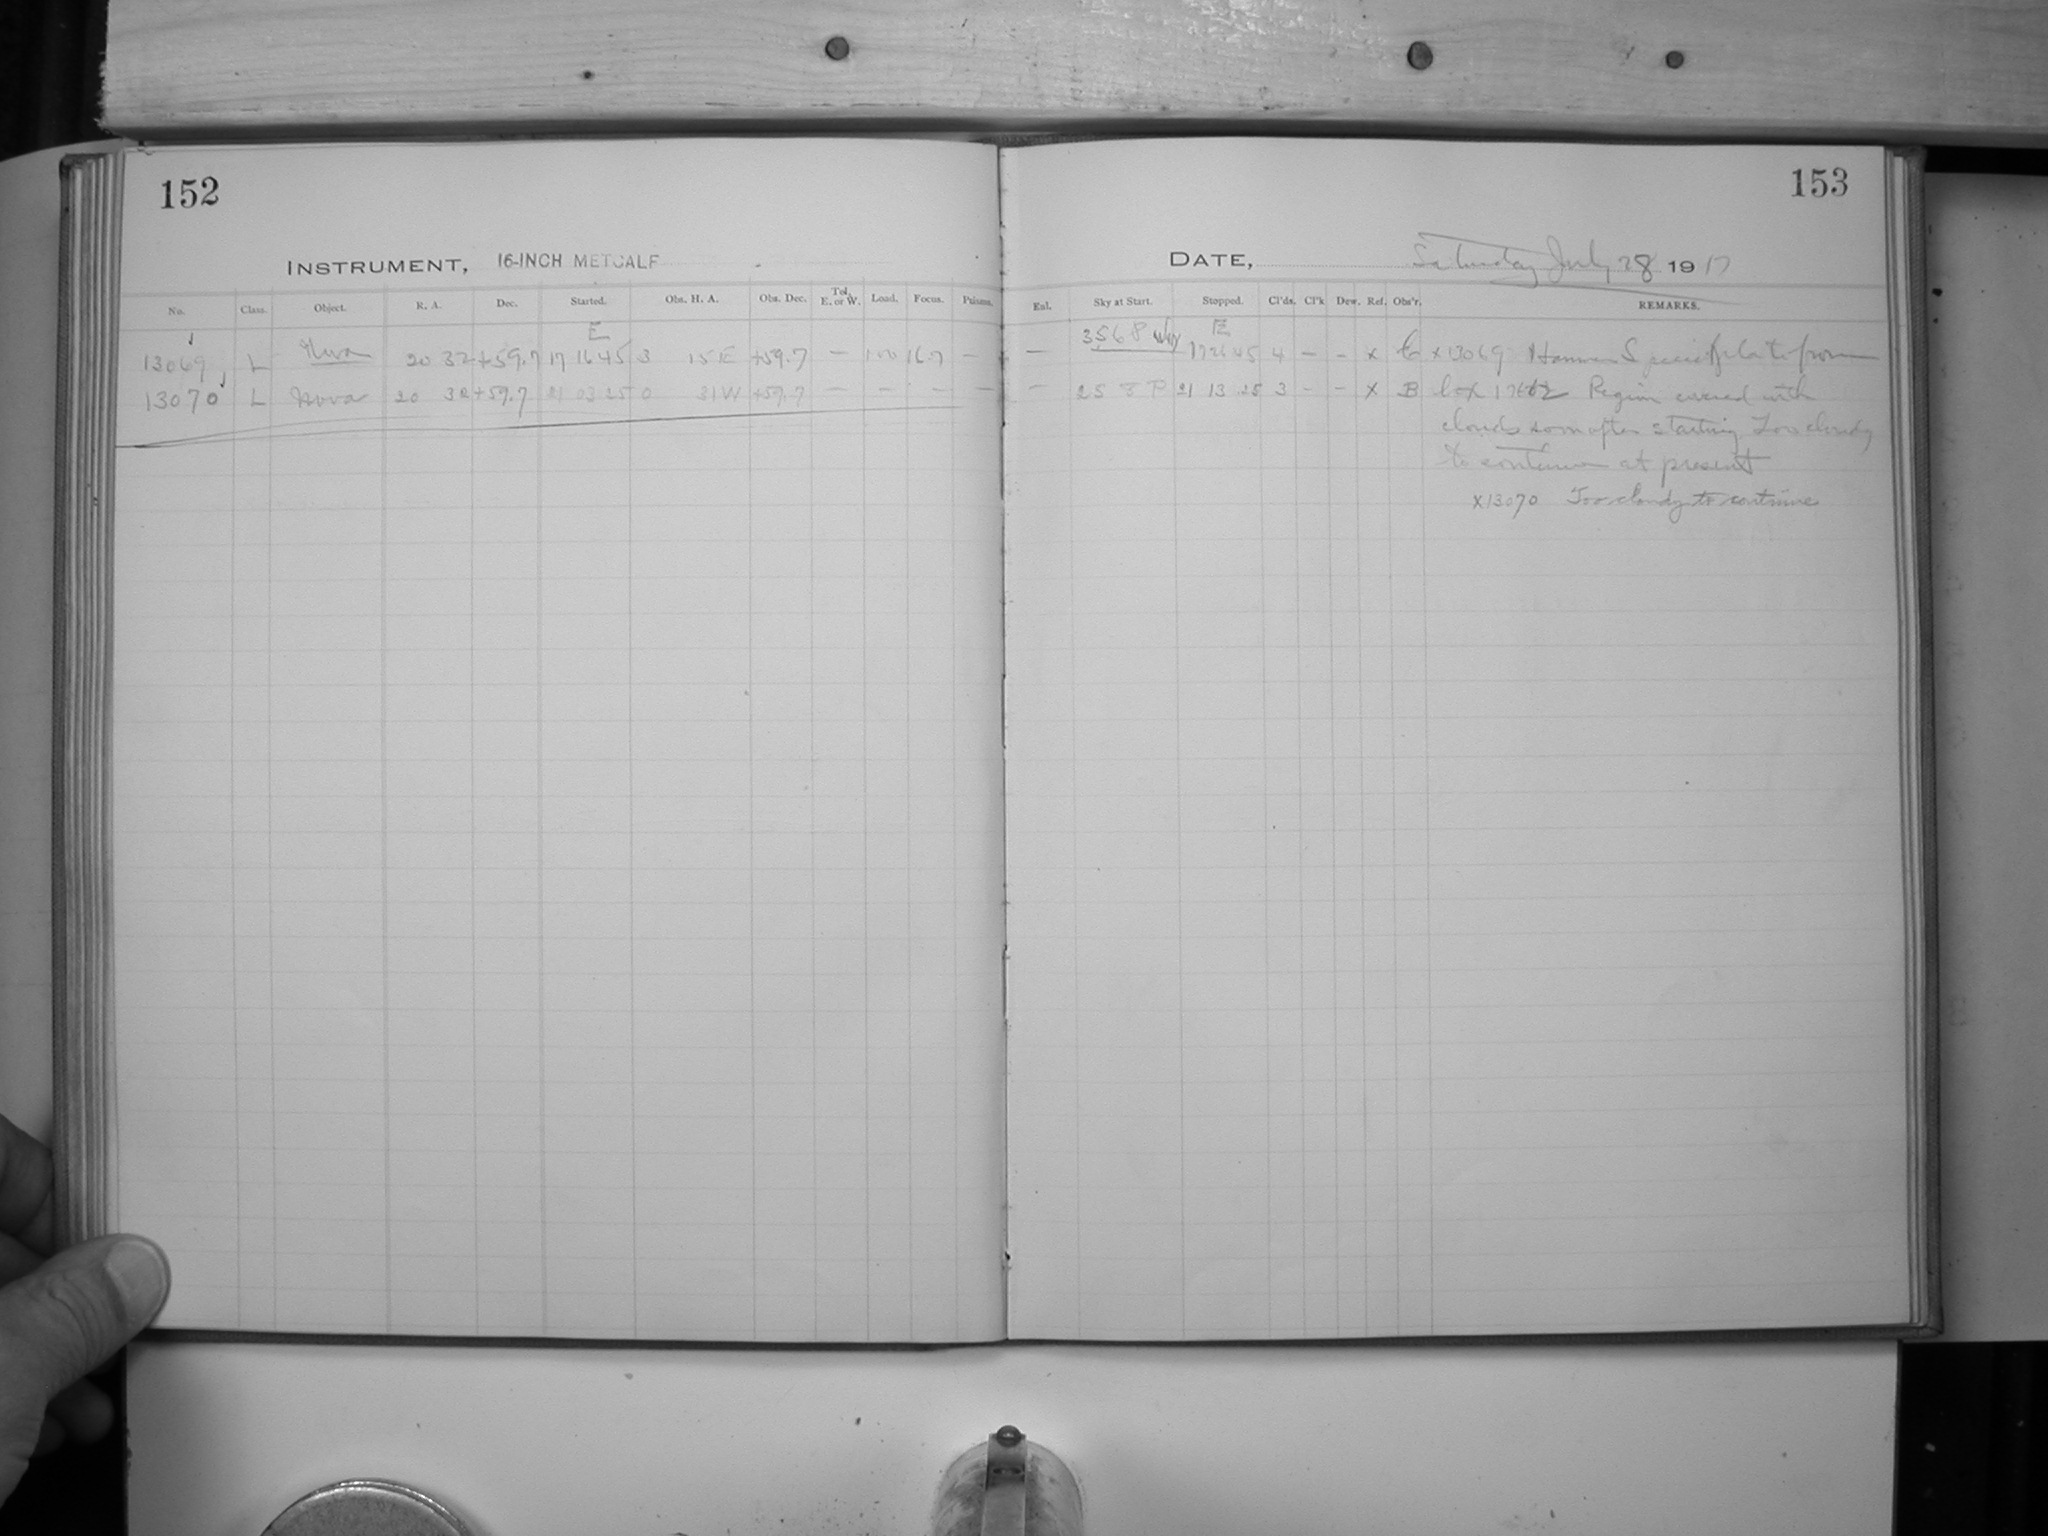 152
153
INSTRUMENT, 16-INCH METCALF
DATE, Saturday July 28 1917
No. Class. Object. R. A. Dec. Started. Obs. H. A. Obs. Dec. Tel. E. or W. Load. Focus. Prisms. Enl. Sky at Start. Stopped. Cl'ds. Cl'k Dew. Ref. Obs'r. REMARKS.
E 3568 E
13069 L Nova 20 32 +59.7 17 16 45 3 15 E +59.7 — 100 16.7 — — 17 26 45 4 — - x C x13069 Hammer Special plate from
13070 L Nova 20 32 +59.7 21 03 25 0 31 W +59.7 — — — — — 25 8 P 21 13 25 3 - - x B box Region covered with
clouds soon after starting Too cloudy
to continue at present
x13070 Too cloudy to continue